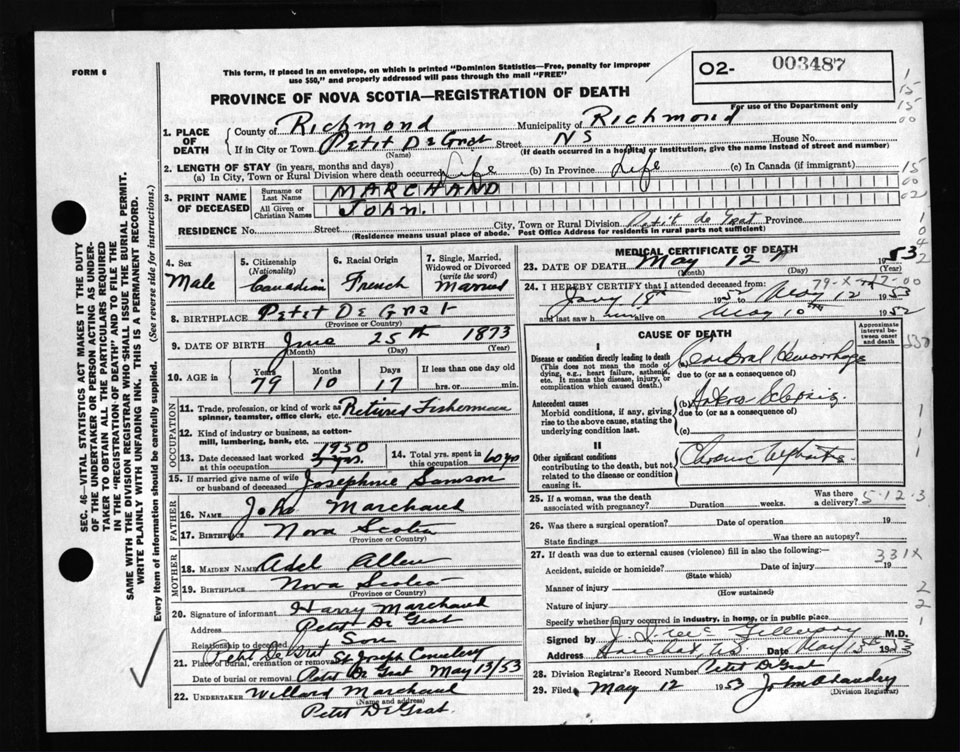 FORM 6
This form, if placed in an envelope, on which is printed "Dominion Statistics—Free, penalty for improper
use $50," and properly addressed will pass through the mail "FREE"
02- 003487
For use of the Department only
PROVINCE OF NOVA SCOTIA—REGISTRATION OF DEATH
1. PLACE OF DEATH
County of Richmond Municipality of Richmond
If in City or Town Petit De Grat Street NS House No.
(Name) (If death occurred in a hospital or institution, give the name instead of street and number)
2. LENGTH OF STAY (in years, months and days)
(a) In City, Town or Rural Division where death occurred Life (b) In Province Life (c) In Canada (if immigrant)
3. PRINT NAME OF DECEASED
Surname or Last Name MARCHAND
All Given or Christian Names JOHN.
RESIDENCE No. Street City, Town or Rural Division Petit de Grat Province
(Residence means usual place of abode. Post Office Address for residents in rural parts not sufficient)
4. Sex Male
5. Citizenship (Nationality) Canadian
6. Racial Origin French
7. Single, Married, Widowed or Divorced (write the word) Married
8. BIRTHPLACE Petit De Grat
(Province or Country)
9. DATE OF BIRTH June 25th 1873
(Month) (Day) (Year)
10. AGE in Years 79 Months 10 Days 17 If less than one day old
hrs. or min.
OCCUPATION
11. Trade, profession, or kind of work as spinner, teamster, office clerk, etc. Retired Fisherman
12. Kind of industry or business, as cotton-mill, lumbering, bank, etc.
13. Date deceased last worked at this occupation 1950 3 yrs.
14. Total yrs. spent in this occupation 60 yrs
15. If married give name of wife or husband of deceased Josephine Samson
FATHER
16. NAME John Marchand
17. BIRTHPLACE Nova Scotia
(Province or Country)
MOTHER
18. MAIDEN NAME Adel Allen
19. BIRTHPLACE Nova Scotia
(Province or Country)
20. Signature of informant Harry Marchand
Address Petit De Grat
Relationship to deceased Son
21. Place of burial, cremation or removal St Joseph Cemetery
Date of burial or removal Petit De Grat May 13/53
22. UNDERTAKER Willard Marchand
(Name and address)
Petit De Grat
MEDICAL CERTIFICATE OF DEATH
23. DATE OF DEATH May 12th 1953
(Month) (Day) (Year)
24. I HEREBY CERTIFY that I attended deceased from:
May 12 1953
and last saw h alive on May 10th 1952
CAUSE OF DEATH
Approximate interval between onset and death
I
Disease or condition directly leading to death
(This does not mean the mode of dying, e.g., heart failure, asthenia, etc. It means the disease, injury, or complication which caused death.)
Cerebral Hemorrhage
due to (or as a consequence of)
Antecedent causes
Morbid conditions, if any, giving rise to the above cause, stating the underlying condition last.
(b)
due to (or as a consequence of)
(c)
II
Other significant conditions
contributing to the death, but not related to the disease or condition causing it.
Chronic Nephritis
25. If a woman, was the death associated with pregnancy? Duration weeks. Was there a delivery? 5-12-3
26. Was there a surgical operation? Date of operation 19
State findings Was there an autopsy?
27. If death was due to external causes (violence) fill in also the following:—
331X
Accident, suicide or homicide? Date of injury 19
(State which)
Manner of injury
(How sustained)
Nature of injury
Specify whether injury occurred in industry, in home, or in public place.
Signed by M.D.
Address Date May 1953
28. Division Registrar's Record Number Petit De Grat
29. Filed May 12 1953
(Division Registrar)
SEC. 46—VITAL STATISTICS ACT MAKES IT THE DUTY
OF THE UNDERTAKER OR PERSON ACTING AS UNDER-
TAKER TO OBTAIN ALL THE PARTICULARS REQUIRED
IN THE "REGISTRATION OF DEATH" AND TO FILE THE
SAME WITH THE DIVISION REGISTRAR WHO SHALL ISSUE THE BURIAL PERMIT.
WRITE PLAINLY WITH UNFADING INK. THIS IS A PERMANENT RECORD.
Every item of information should be carefully supplied. (See reverse side for instructions.)